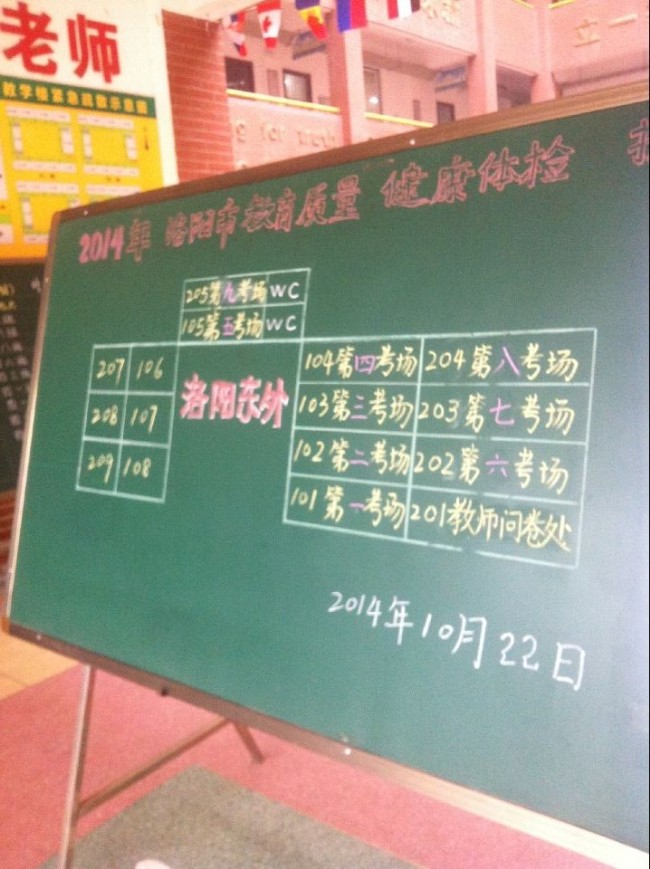 老师
教学楼紧急疏散示意图
2014年 洛阳市教育质量 健康体检
205第九考场 WC
105第五考场 WC
207 106
208 107
209 108
洛阳东外
104第四考场 204第八考场
103第三考场 203第七考场
102第二考场 202第六考场
101第一考场 201教师问卷处
2014年10月22日